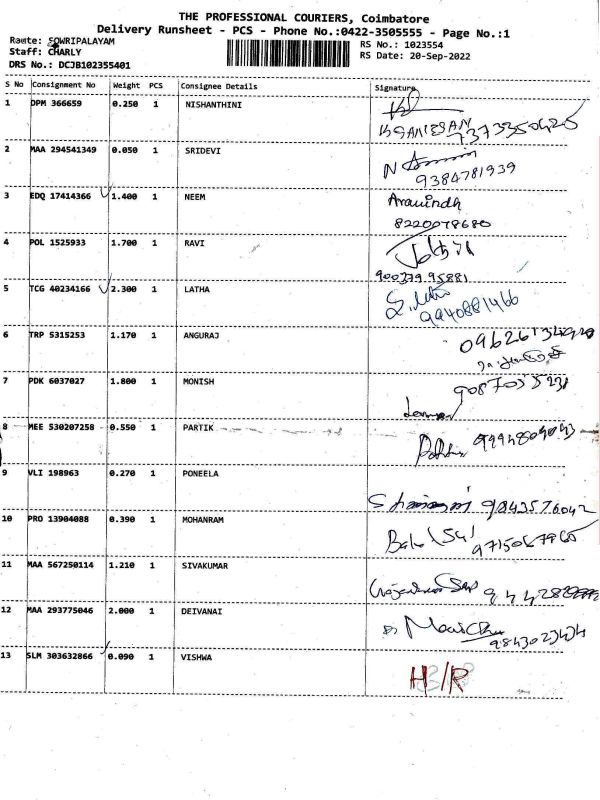 THE PROFESSIONAL COURIERS, Coimbatore
Delivery Runsheet - PCS - Phone No.:0422-3505555 - Page No.:1
Raute: SOWRIPALAYAM
Staff: CHARLY
DRS No.: DCJB102355401
RS No.: 1023554
RS Date: 20-Sep-2022
S No Consignment No Weight PCS Consignee Details Signature
1 DPM 366659 0.250 1 NISHANTHINI
KGANESAN 7373350425
2 MAA 294541349 0.050 1 SRIDEVI
9384781939
3 EDQ 17414366 1.400 1 NEEM Aravindh
8220078680
4 POL 1525933 1.700 1 RAVI
900379.95881
5 TCG 40234166 2.300 1 LATHA
9940881466
6 TRP 5315253 1.170 1 ANGURAJ
7 PDK 6037027 1.800 1 MONISH
8 MEE 530207258 0.550 1 PARTIK
9 VLI 198963 0.270 1 PONEELA
9843576042
10 PRO 13904088 0.390 1 MOHANRAM
9715067965
11 MAA 567250114 1.210 1 SIVAKUMAR
12 MAA 293775046 2.000 1 DEIVANAI
9843023434
13 SLM 303632866 0.090 1 VISHWA
H/R